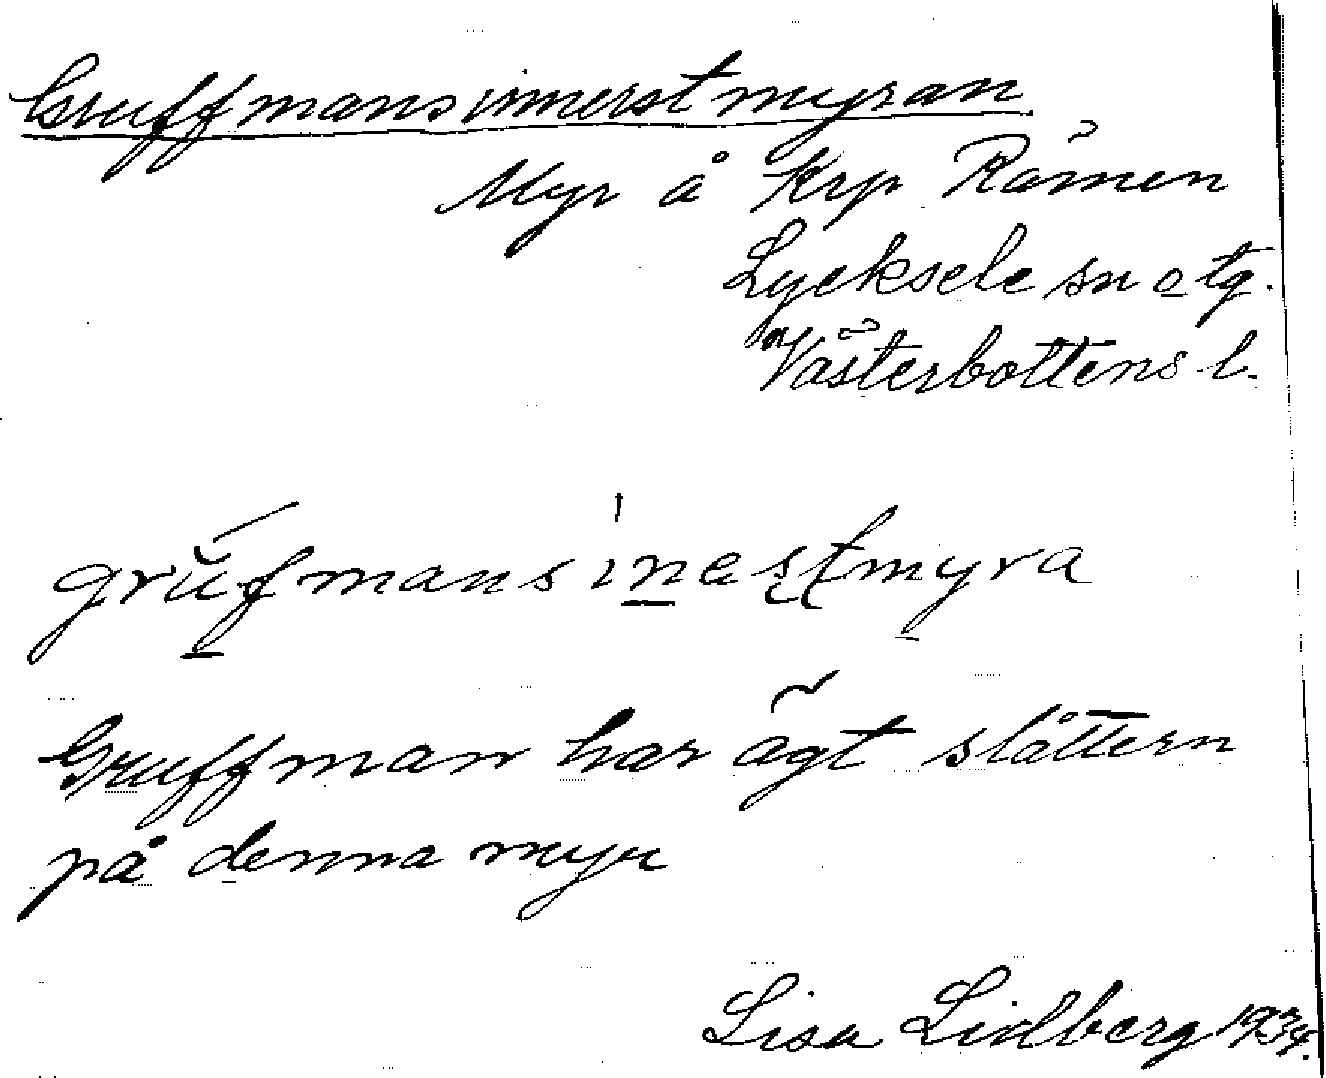 Gruffmansinnerstmyran
Myr å Krp Råmen
Lycksele sn o tg.
Västerbottens l.
grŭfmansinestmyra
Gruffman har ägt slåttern
på denna myr
Lisa Lidberg 1934.